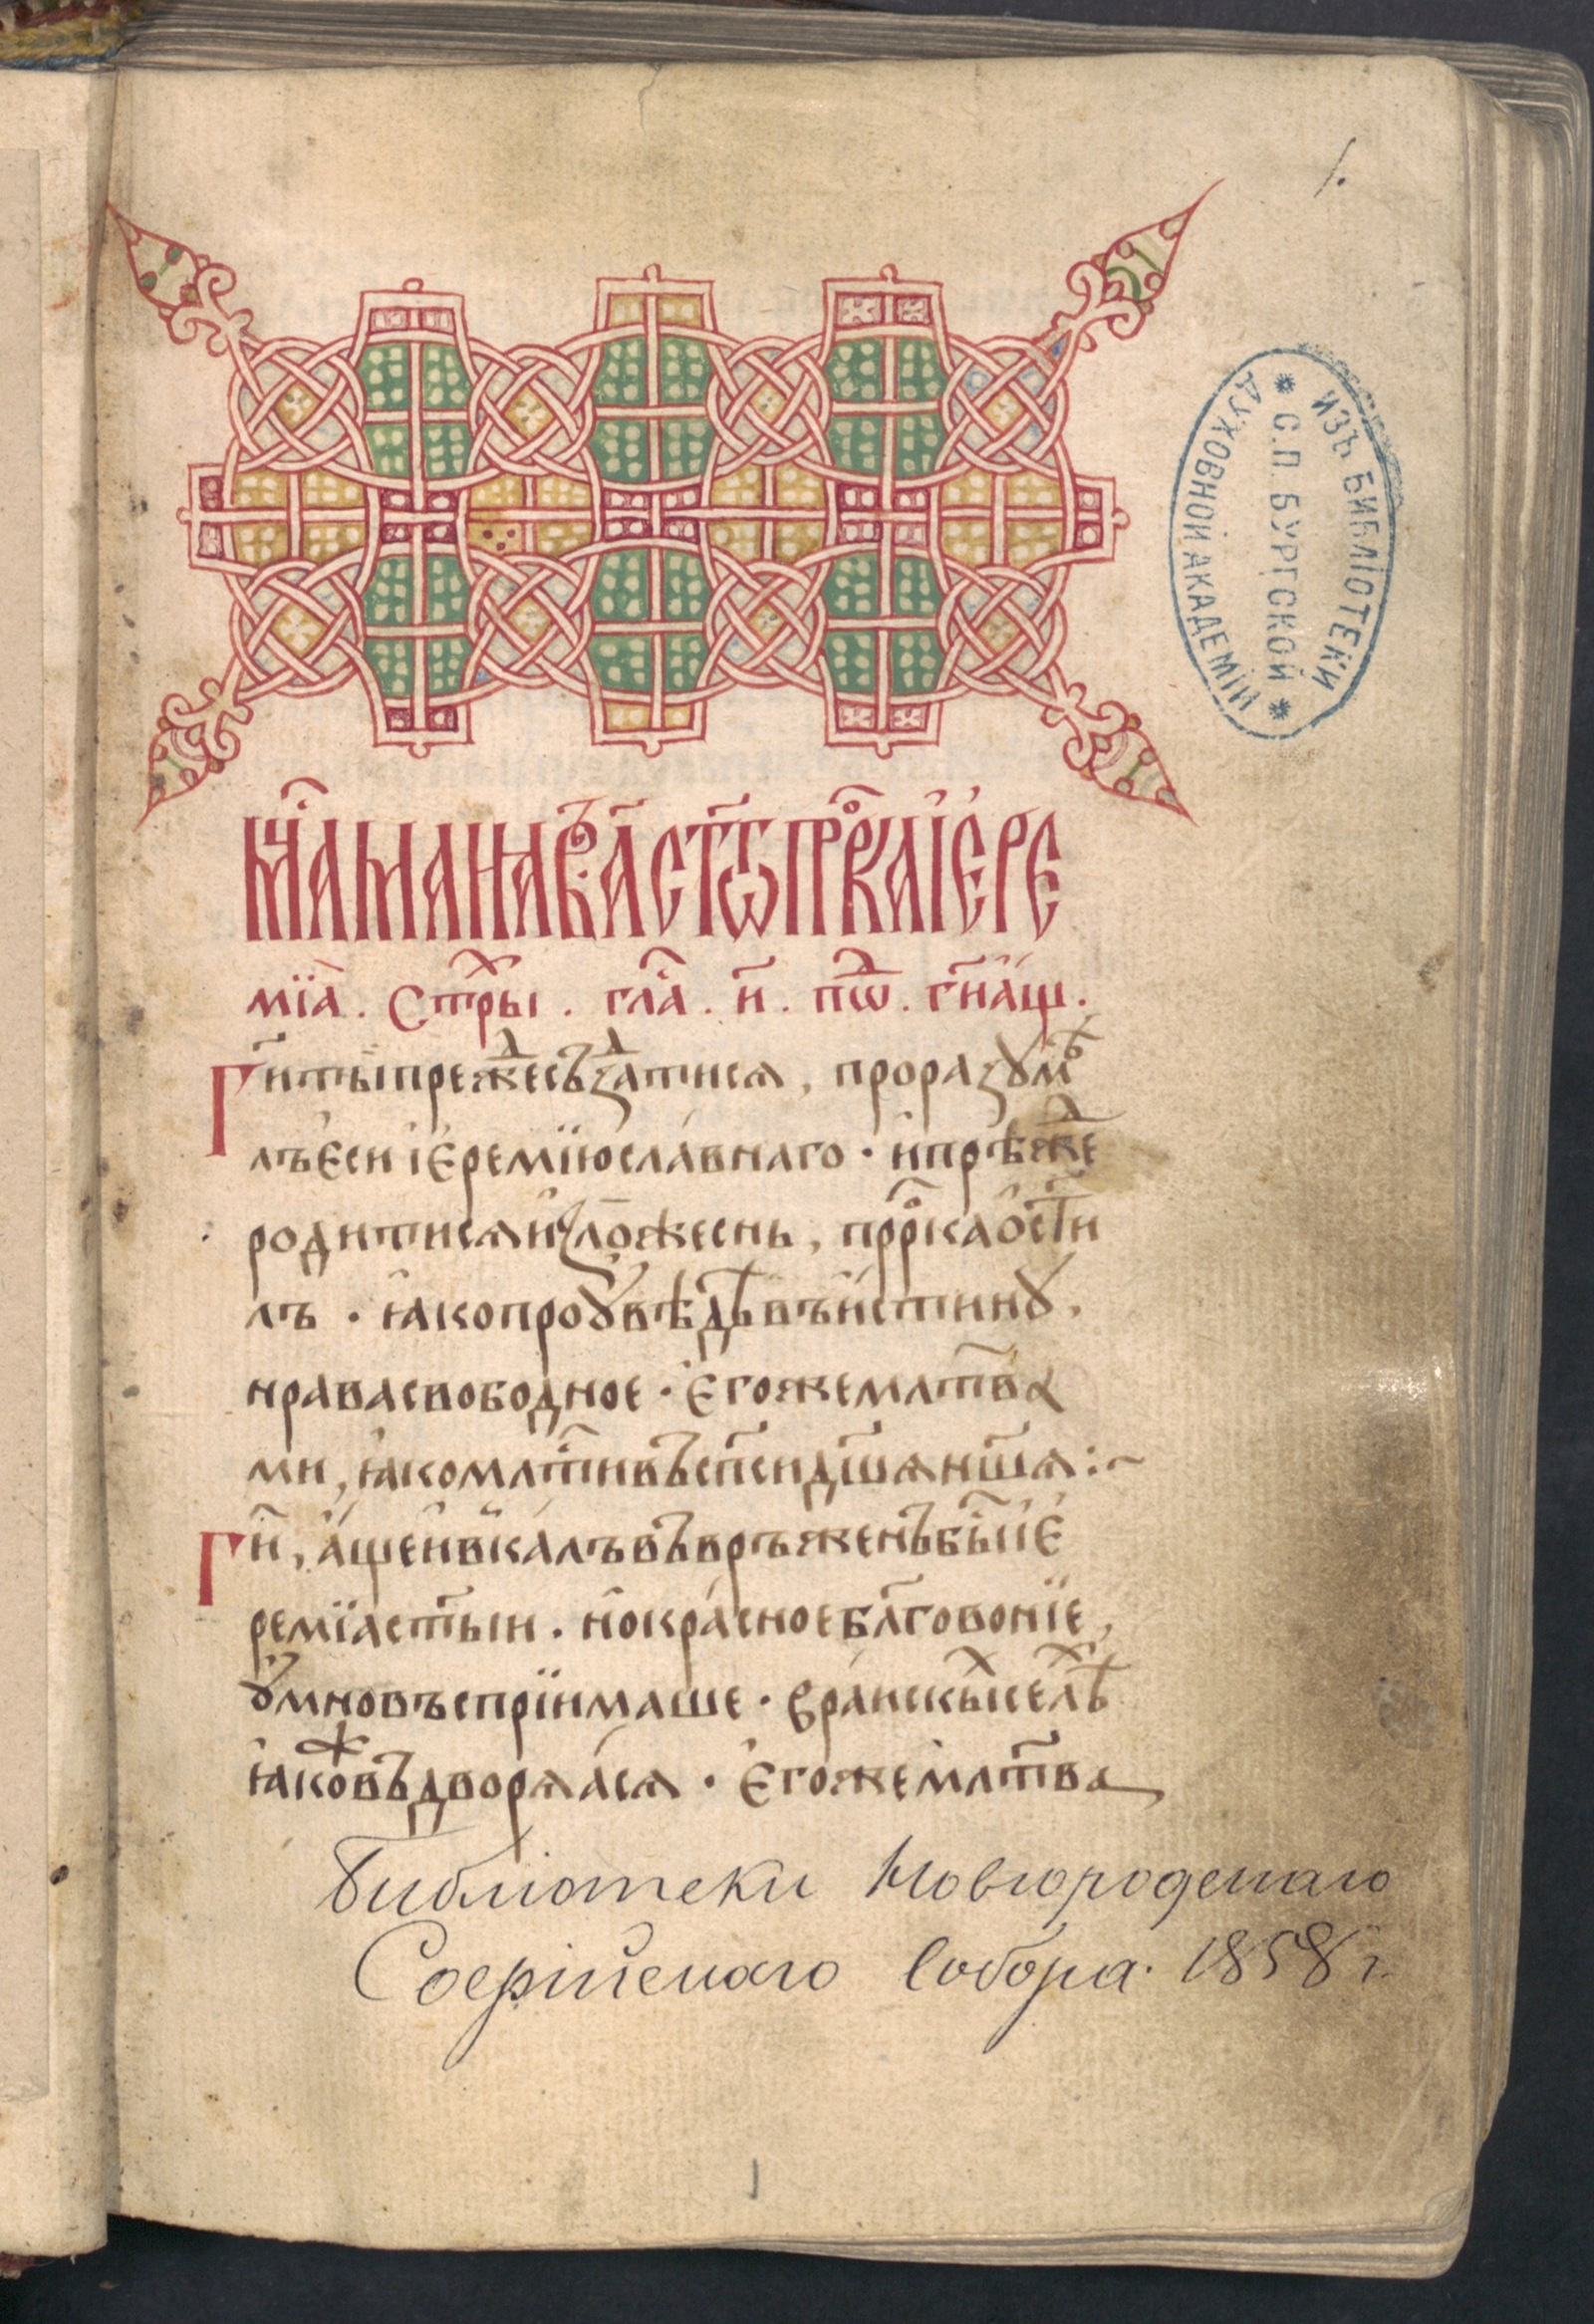 1.
ИЗЪ БИБЛІОТЕКИ
С.П.БУРГСКОЙ
ДУХОВНОЙ АКАДЕМІИ
мⷭ҇ца маїа въ а҃ ст҃го прⷪ҇рка іере
мїа. Стⷯры. глⷭ҇а. и҃. пⷣѡ. гн҃ ащ.
Ги҃ ты преⷤⷣе съꙁⷣатисѧ, прораꙁꙋмⷪ҇ⷡ
лъ еси іеремїю славнаго · и прѣⷤⷣе
родитисѧ иꙁ ложеснъ, прⷪ҇рка ѡст҃и
лъ · ꙗко проꙋвѣдѣвъ истинꙋ,
нрава свободное · егоже мл҃тва
ми, ꙗко млⷭ҇тивъ сп҃си дш҃ѧ нш҃ѧ :~
Ги҃, аще и въ калъ въвръженъ бы іе
ремїа ст҃ыи · но красное бл҃говонїе,
ꙋмно въспрїимаше · въ раискыⷯ селѣⷯ
ꙗкоⷤ въдворѧасѧ · егоже мл҃тва
Библіотеки Новгородскаго
Софійскаго Собора. 1858 г.
1